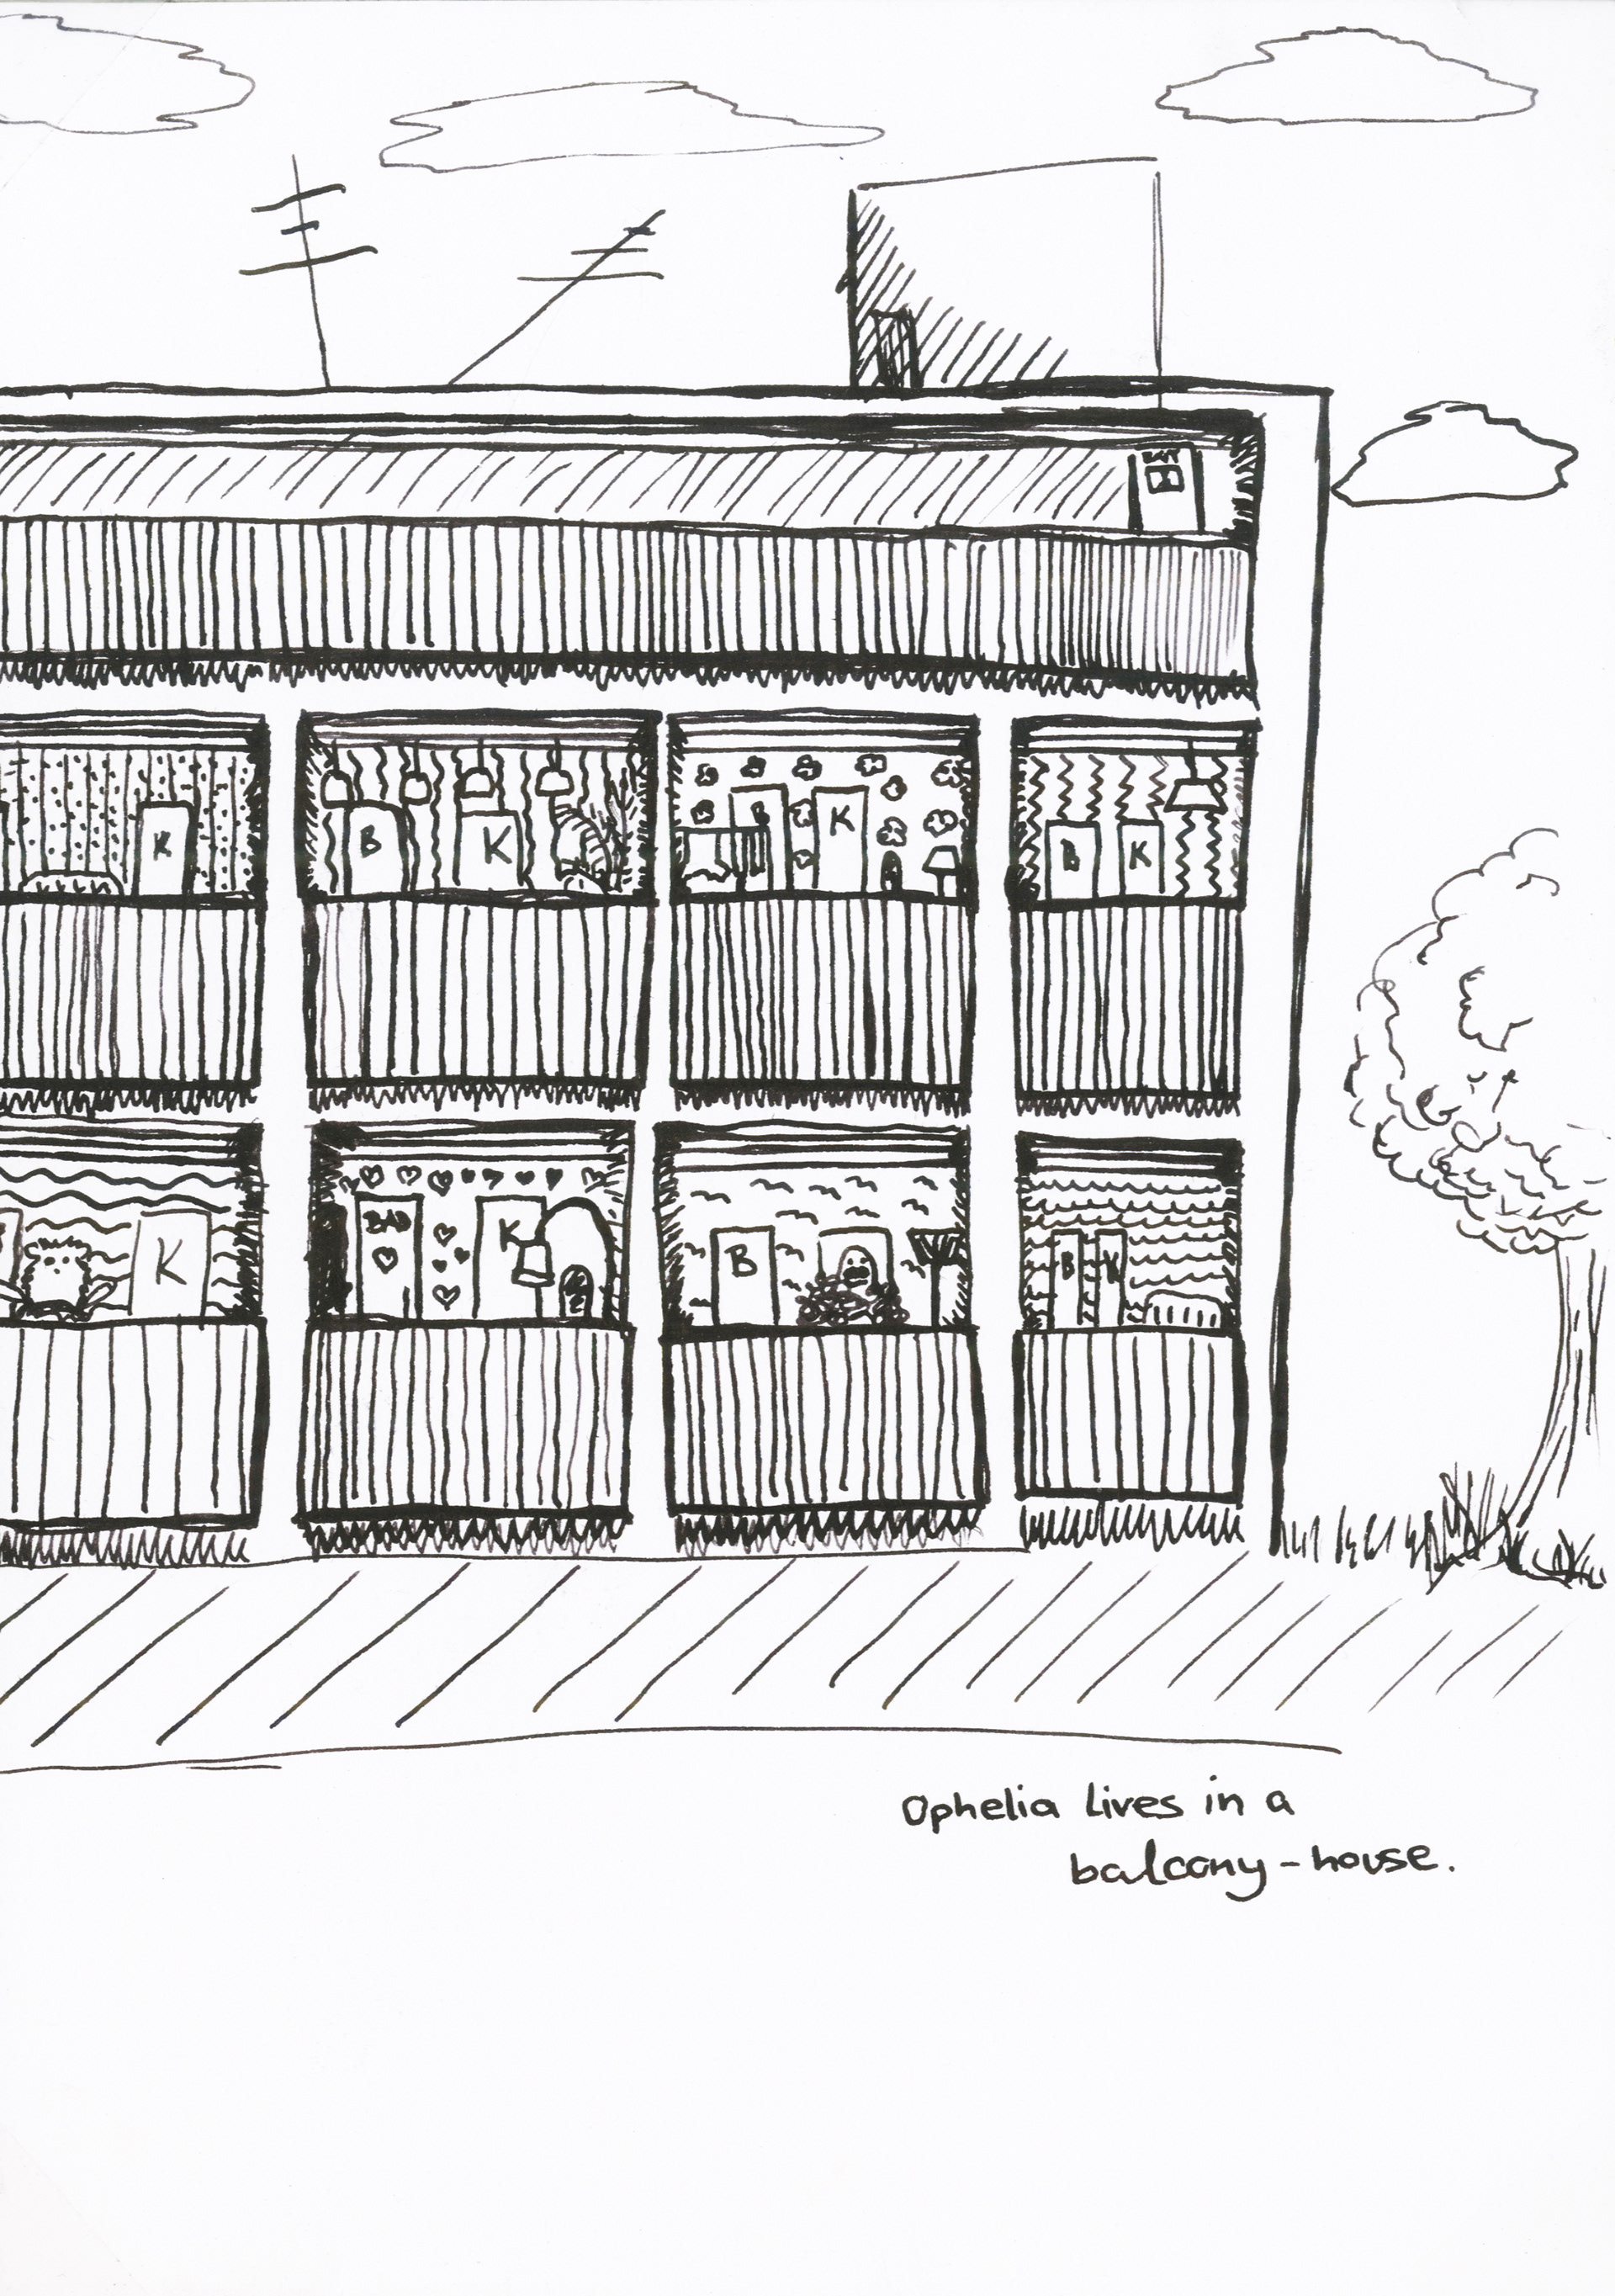 K
B
K
B
K
B
K
K
BAD
K
B
B
K
Ophelia lives in a
balcony-house.